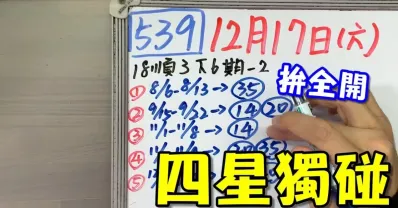 539 12月17日(六)
18順3下6期-2
拚全開
① 8/6-8/13→35
② 9/15-9/22→14 20
③ 11/1-11/8→14
④
⑤
四星獨碰